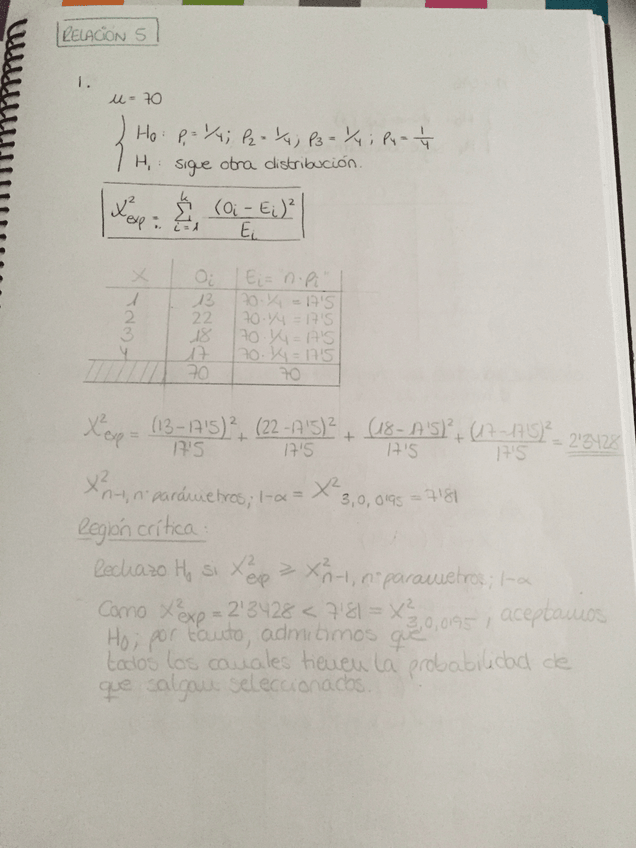 RELACIÓN 5
1.
μ = 70
H₀: p₁ = 1/4; p₂ = 1/4; p₃ = 1/4; p₄ = 1/4
H₁: sigue otra distribución.
X²exp = Σ i=1 k (Oi - Ei)² / Ei
X Oi Ei = n·pi
1 13 70·1/4 = 17'5
2 22 70·1/4 = 17'5
3 18 70·1/4 = 17'5
4 17 70·1/4 = 17'5
70 70
X²exp = (13-17'5)²/17'5 + (22-17'5)²/17'5 + (18-17'5)²/17'5 + (17-17'5)²/17'5 = 2'3428
X² n-1, nº parámetros; 1-α = X² 3, 0, 0'95 = 7'81
Región crítica:
Rechazo H₀ si X²exp ⩾ X² n-1, nº parametros; 1-α
Como X²exp = 2'3428 < 7'81 = X² 3, 0, 0'95, aceptamos
H₀; por tanto, admitimos que
todos los canales tienen la probabilidad de
que salgan seleccionados.